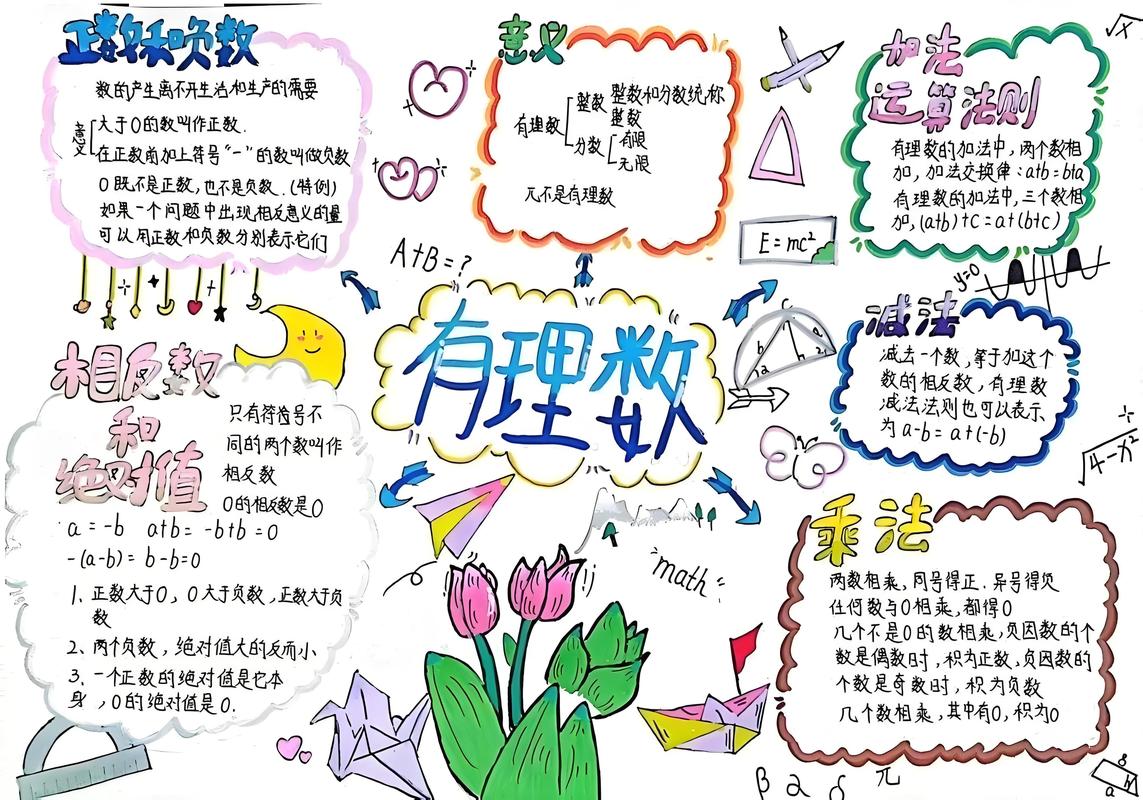 正数和负数
数的产生离不开生活和生产的需要
意义
大于0的数叫作正数.
在正数前加上符号“-”的数叫做负数
0既不是正数,也不是负数.(特例)
如果一个问题中出现相反意义的量
可以用正数和负数分别表示它们
意义
有理数
整数
整数和分数统称
整数
分数
有限
无限
兀不是有理数
加法
运算法则
有理数的加法中,两个数相
加,加法交换律:a+b=b+a
有理数的加法中,三个数相
加,(a+b)+c=a+(b+c)
√x
E=mc²
A+B=?
y=0
有理数
减法
减去一个数,等于加这个
数的相反数,有理数
减法法则也可以表示
为a-b=a+(-b)
√4-x²
相反数
和
绝对值
只有符号不
同的两个数叫作
相反数
0的相反数是0
a=-b a+b=-b+b=0
-(a-b)=b-b=0
1、正数大于0,0大于负数,正数大于负
数
2、两个负数,绝对值大的反而小
3、一个正数的绝对值是它本
身,0的绝对值是0.
"math"
乘法
两数相乘,同号得正.异号得负
任何数与0相乘,都得0
几个不是0的数相乘,负因数的个
数是偶数时,积为正数,负因数的
个数是奇数时,积为负数
几个数相乘,其中有0,积为0
β 2 δ π